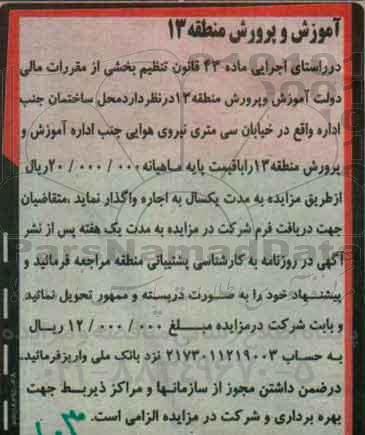 آموزش و پرورش منطقه ۱۳
درراستای اجرایی ماده ۴۳ قانون تنظیم بخشی از مقررات مالی
دولت آموزش وپرورش منطقه۱۳درنظرداردمحل ساختمان جنب
اداره واقع در خیابان سی متری نیروی هوایی جنب اداره آموزش و
پرورش منطقه۱۳راباقیمت پایه ماهیانه۰۰۰ / ۰۰۰ /۲۰ریال
ازطریق مزایده به مدت یکسال به اجاره واگذار نماید .متقاضیان
جهت دریافت فرم شرکت در مزایده به مدت یک هفته پس از نشر
آگهی در روزنامه به کارشناسی پشتیبانی منطقه مراجعه فرمائید و
پیشنهاد خود را به صورت دربسته و ممهور تحویل نمائید
و بابت شرکت درمزایده مبلغ ۰۰۰ / ۰۰۰ / ۱۲ ریال
به حساب ۲۱۷۳۰۱۱۲۱۹۰۰۳ نزد بانک ملی واریزفرمائید.
درضمن داشتن مجوز از سازمانها و مراکز ذیربط جهت
بهره برداری و شرکت در مزایده الزامی است.
ParsNamadData